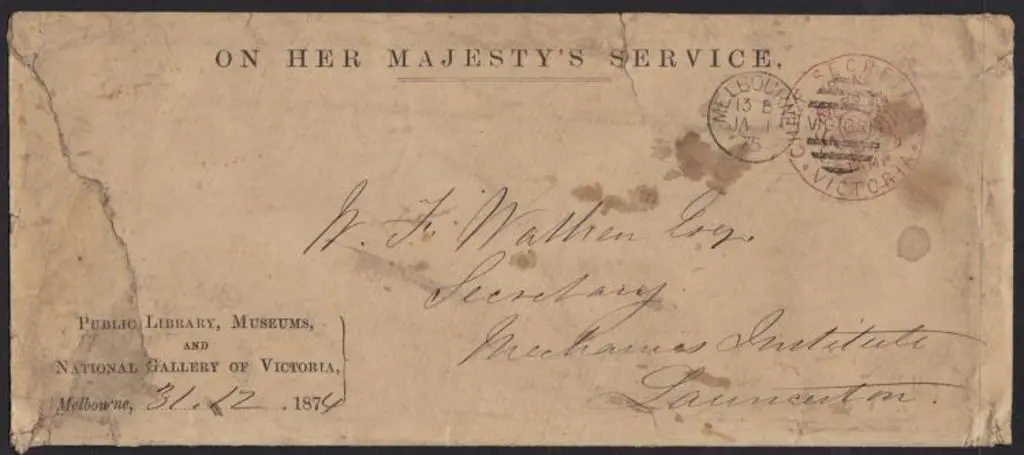 ON HER MAJESTY'S SERVICE.
MELBOURNE
13 B
JA 1
75
CHIEF SECRETARY
VICTORIA
W. F. Wathen Esq.
Secretary
Mechanics Institute
Launceston.
PUBLIC LIBRARY, MUSEUMS,
AND
NATIONAL GALLERY OF VICTORIA,
Melbourne, 31.12.1874